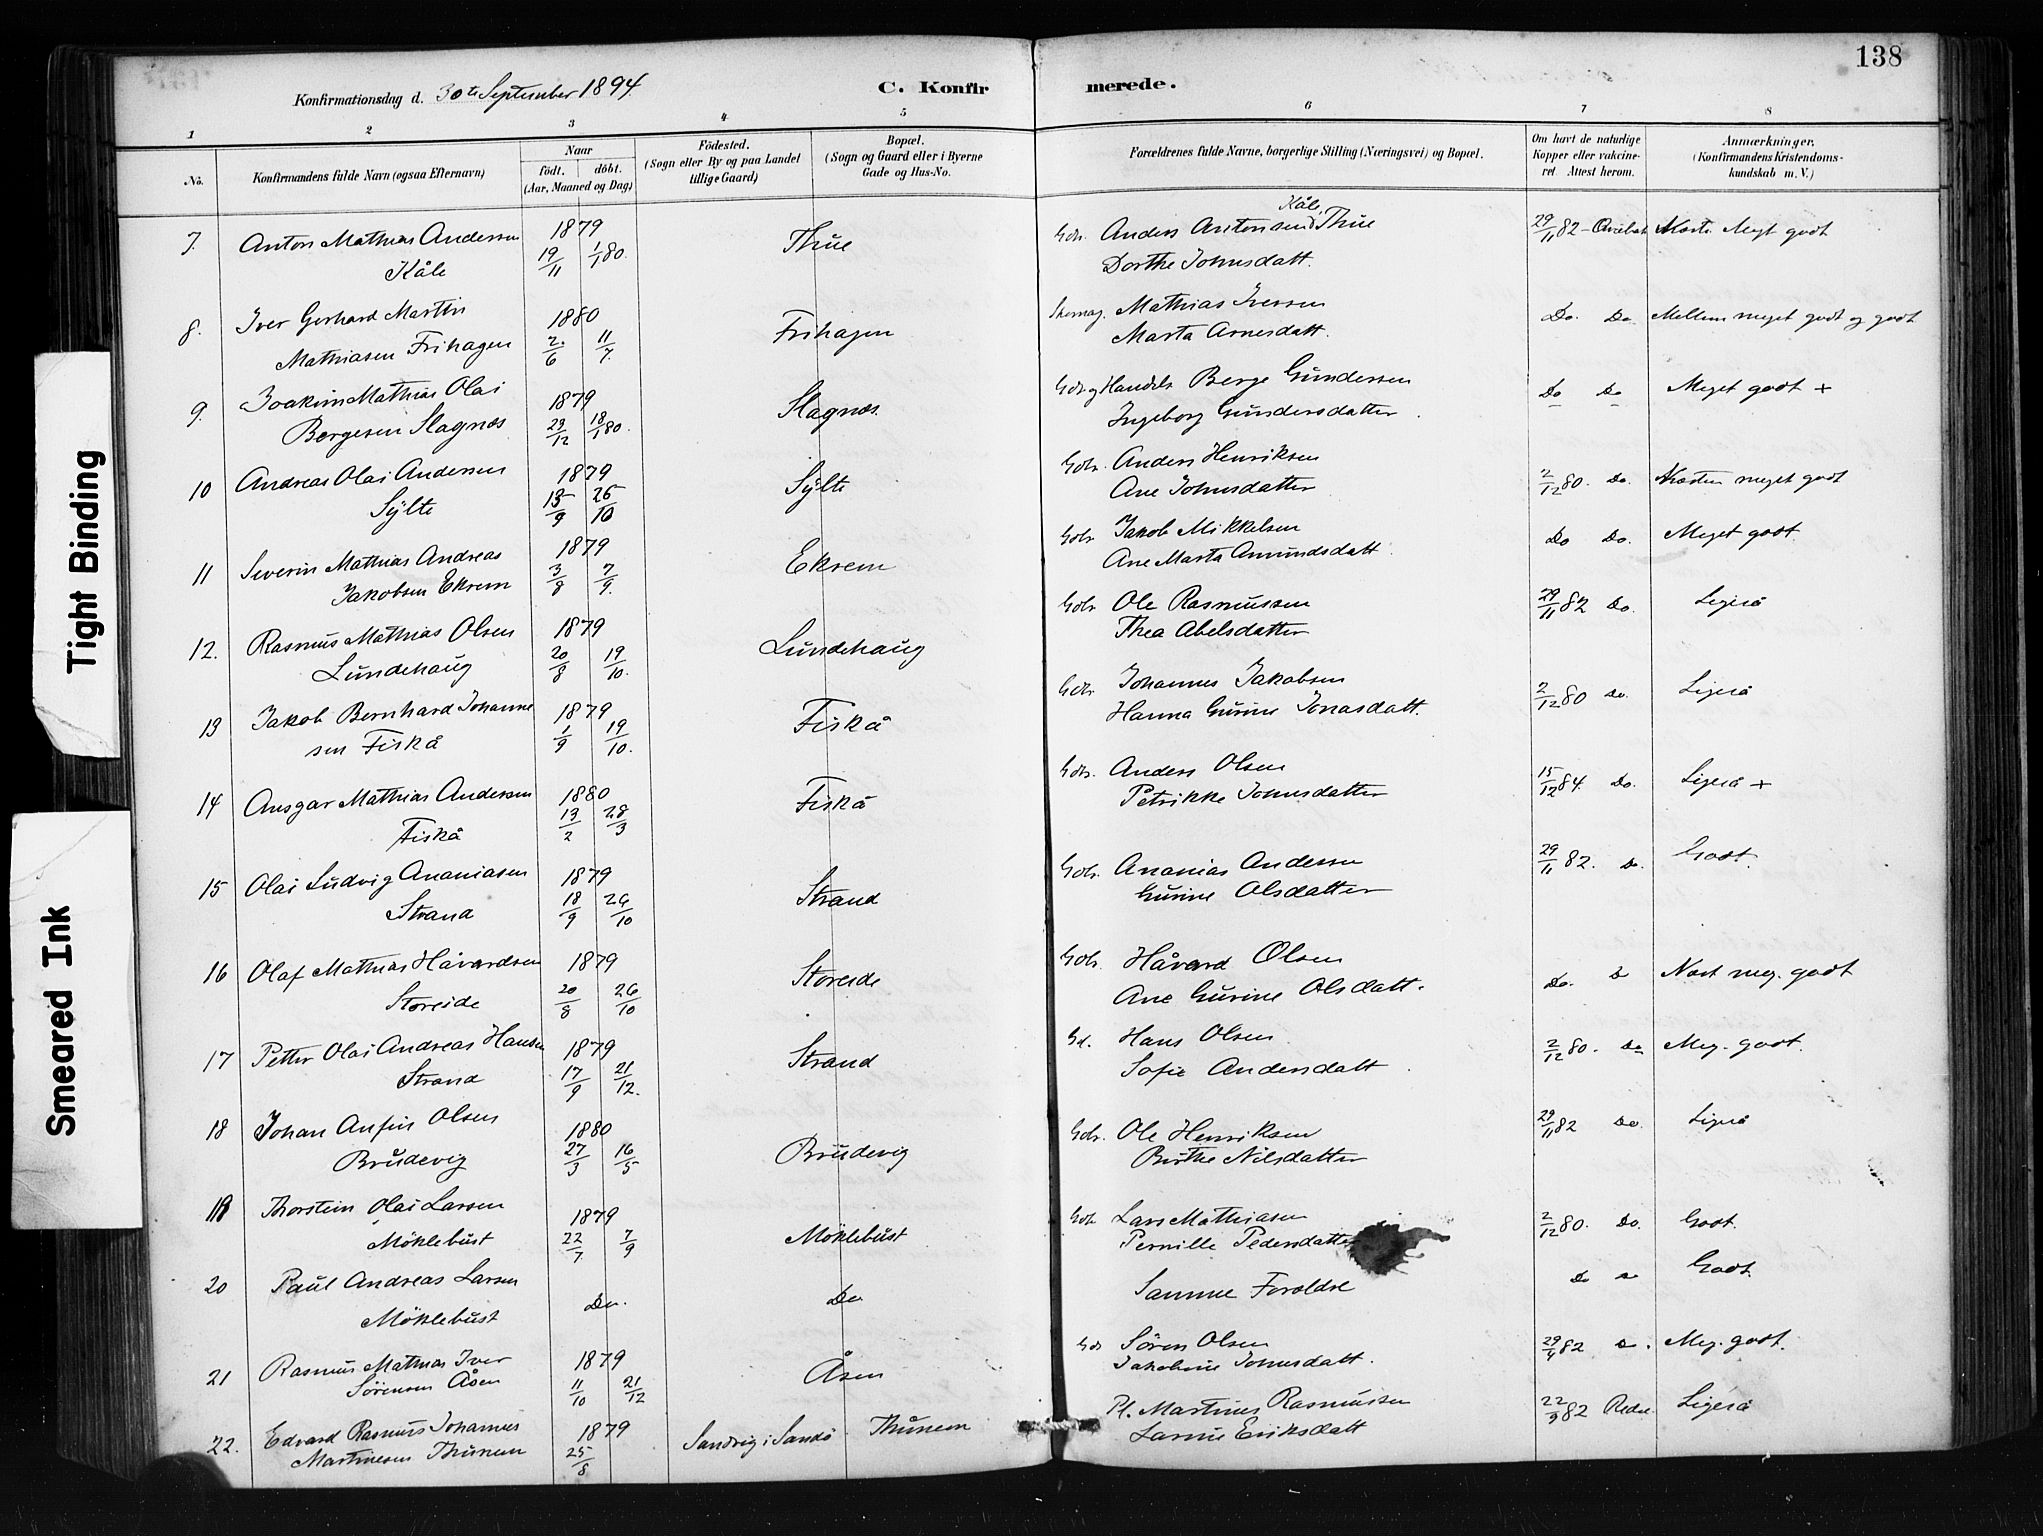 138
Konfirmationsdag d. 30te September 1894
C. Konfirmerede.
1 2 3 4 5 6 7 8
No.
Konfirmandens fulde Navn (ogsaa Efternavn)
Naar
født. døbt.
(Aar, Maaned og Dag)
Fødested.
(Sogn eller By og paa Landet
tillige Gaard)
Bopæl.
(Sogn og Gaard eller i Byerne
Gade og Hus-No.
Forældrenes fulde Navne, borgerlige Stilling (Næringsvei) og Bopæl.
Om havt de naturlige
Kopper eller vakcine-
ret Attest herom.
Anmærkninger.
(Konfirmandens Kristendoms-
kundskab m. V.)
Kåle
7. Anton Mathias Andersen 1879 Thue Gbr. Anders Antonsen Thue 29/11 82 Næsten Megt godt
Kåle 19/11 1/1 80. Dorthe Johnsdatt.
8. Iver Gerhard Martin 1880 Frihagen Mathias Iversen Do. Do. Mellem meget godt og godt
Mathiasen Frihagen 2/6 11/7. Marta Arnesdatt.
9. Joakim Mathias Olai 1879 Slagnæs Gbr og Handels Berge Gundersen Do Do Meget godt +
Bergesen Slagnæs 29/12 18/1 80. Ingeborg Gundersdatter
10 Andreas Olai Andersen 1879 Sylte Gbr. Anders Henriksen 2/12 80. Do. Næsten meget godt
Sylte 13/9 26/10 Ane Johnsdatter
11 Severin Mathias Andreas 1879 Ekrem Gbr Jakob Mikkelsen Do Do. Meget godt.
Jakobsen Ekrem 3/8 7/9. Ane Marta Amundsdatt.
12. Rasmus Mathias Olsen 1879 Lundehaug Gbr Ole Rasmussen 29/11 82 Do. Ligeså
Lundehaug 20/8 19/10. Thea Abelsdatter
13 Jakob Bernhard Johanne 1879 Fiskå Gbr Johannes Jakobsen 2/12 80 Do. Ligeså
sen Fiskå 1/9 19/10. Hanna Gurine Jonasdatt.
14 Ansgar Mathias Andersen 1880 Fiskå Gbr. Anders Olsen 15/12 84. Do. Ligeså +
Fiskå 13/2 28/3 Petrikke Johnsdatter
15 Olai Ludvig Ananiasen 1879 Strand Gbr. Ananias Andersen 29/11 82. D. Godt.
Strand 18/9 26/10 Gurine Olsdatter
16 Olaf Mathias Håvardsen 1879 Storeide Gbr. Håvard Olsen Do. D Næst meg. godt
Storeide 20/8 26/10 Ane Gurine Olsdatt.
17 Petter Olai Andreas Hansen 1879 Strand Gd. Hans Olsen 2/12 80. Do Meg. godt.
Strand 17/9 21/12. Sofie Andersdatt
18 Johan Anfin Olsen 1880 Brudevig Gbr. Ole Henriksen 29/11 82 Do. Ligeså
Brudevig 27/3 16/5 Birthe Nilsdatter
19 Thorstein Olai Larsen 1879 Möklebust Gbr Lars Mathiasen 2/12 80. Do. Godt.
Möklebust 22/7 7/9 Pernille Pedersdatter
20 Paul Andreas Larsen Do. Do Samme Foreldre Do Godt.
Möklebust
21 Rasmus Mathias Iver 1879 Åsen Gbr Sören Olsen 29/9 82 Meg. godt.
Sörensen Åsen 11/10 21/12 Jakobine Johnsdatt.
22. Edvard Rasmus Johannes 1879 Sandvig i Sandö Thunem Pl. Martinus Rasmussen 22/9 82 Ligeså
Martinesen Thunem 25/8 Larine Eriksdatt
Tight Binding
Smeared Ink